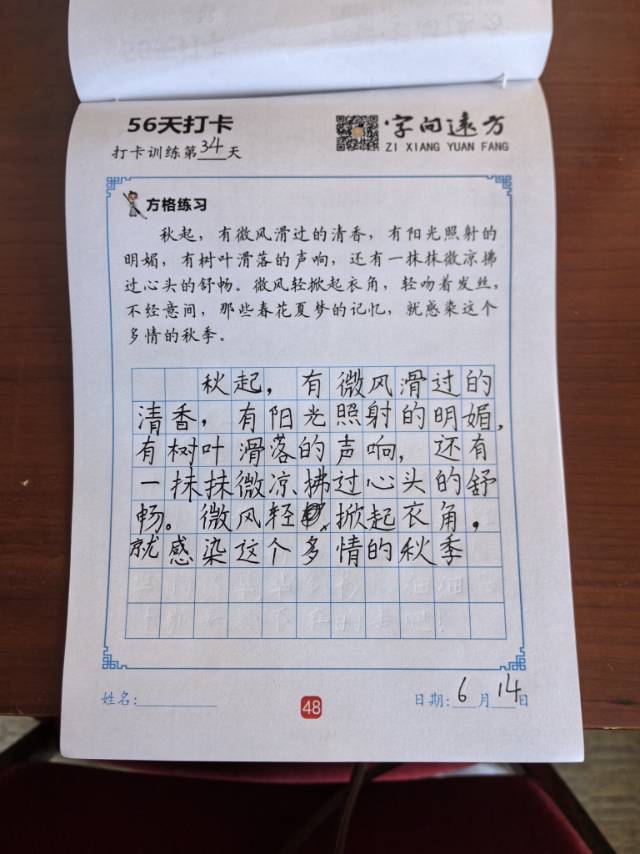 56天打卡
打卡训练第34天
字向远方
ZI XIANG YUAN FANG
方格练习
秋起，有微风滑过的清香，有阳光照射的
明媚，有树叶滑落的声响，还有一抹抹微凉拂
过心头的舒畅。微风轻掀起衣角，轻吻着发丝，
不经意间，那些春花夏梦的记忆，就感染这个
多情的秋季。
秋起，有微风滑过的
清香，有阳光照射的明媚，
有树叶滑落的声响，还有
一抹抹微凉、拂过心头的舒
畅。微风轻掀起衣角，
就感染这个多情的秋季
姓名：
48
日期：6月14日